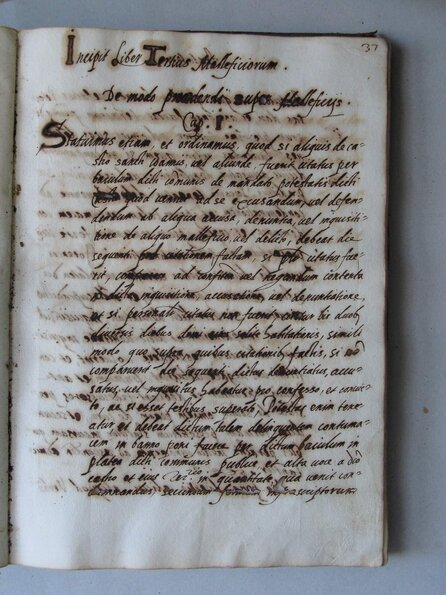 37
Incipit Liber Tertius Malleficiorum.
De modo procedendi super Malleficijs
Cap. I.
Statuimus etiam, et ordinamus, quod si aliquis de ca-
stro sancti vel aliunde fuerit citatus per
baiulum dicti communis de mandato potestatis dicti
quod veniat ad se excusandum, vel defen-
dendum ab aliqua accusa, denuntia, vel inquisiti-
one de aliquo malleficio, vel delicto, debeat die
sequenti citationem factam, si citatus fue-
rit, comparere ad confitendum vel negandum contenta
in dicta inquisitione, accusatione, vel denuntiatione,
et si personali citatus non fuerit citetur bis duob.
diebus solite habitationis, simili
modo, que super quibus citationib. factis, si non
comparuerit die sequenti, dictus denuntiatus, accu-
satus, vel inquisitus habeatur pro confesso, et convic-
to, ac si esset testibus superatus. Potestas enim tene-
atur et debeat dictum talem delinquentem contuma-
cem in banno poni facere per dictum baiulum in
platea dicti communis publice et alta voce a dicto
castro et eius in quantitate qua venit con-
demnandus, secundum formam infrascriptorum